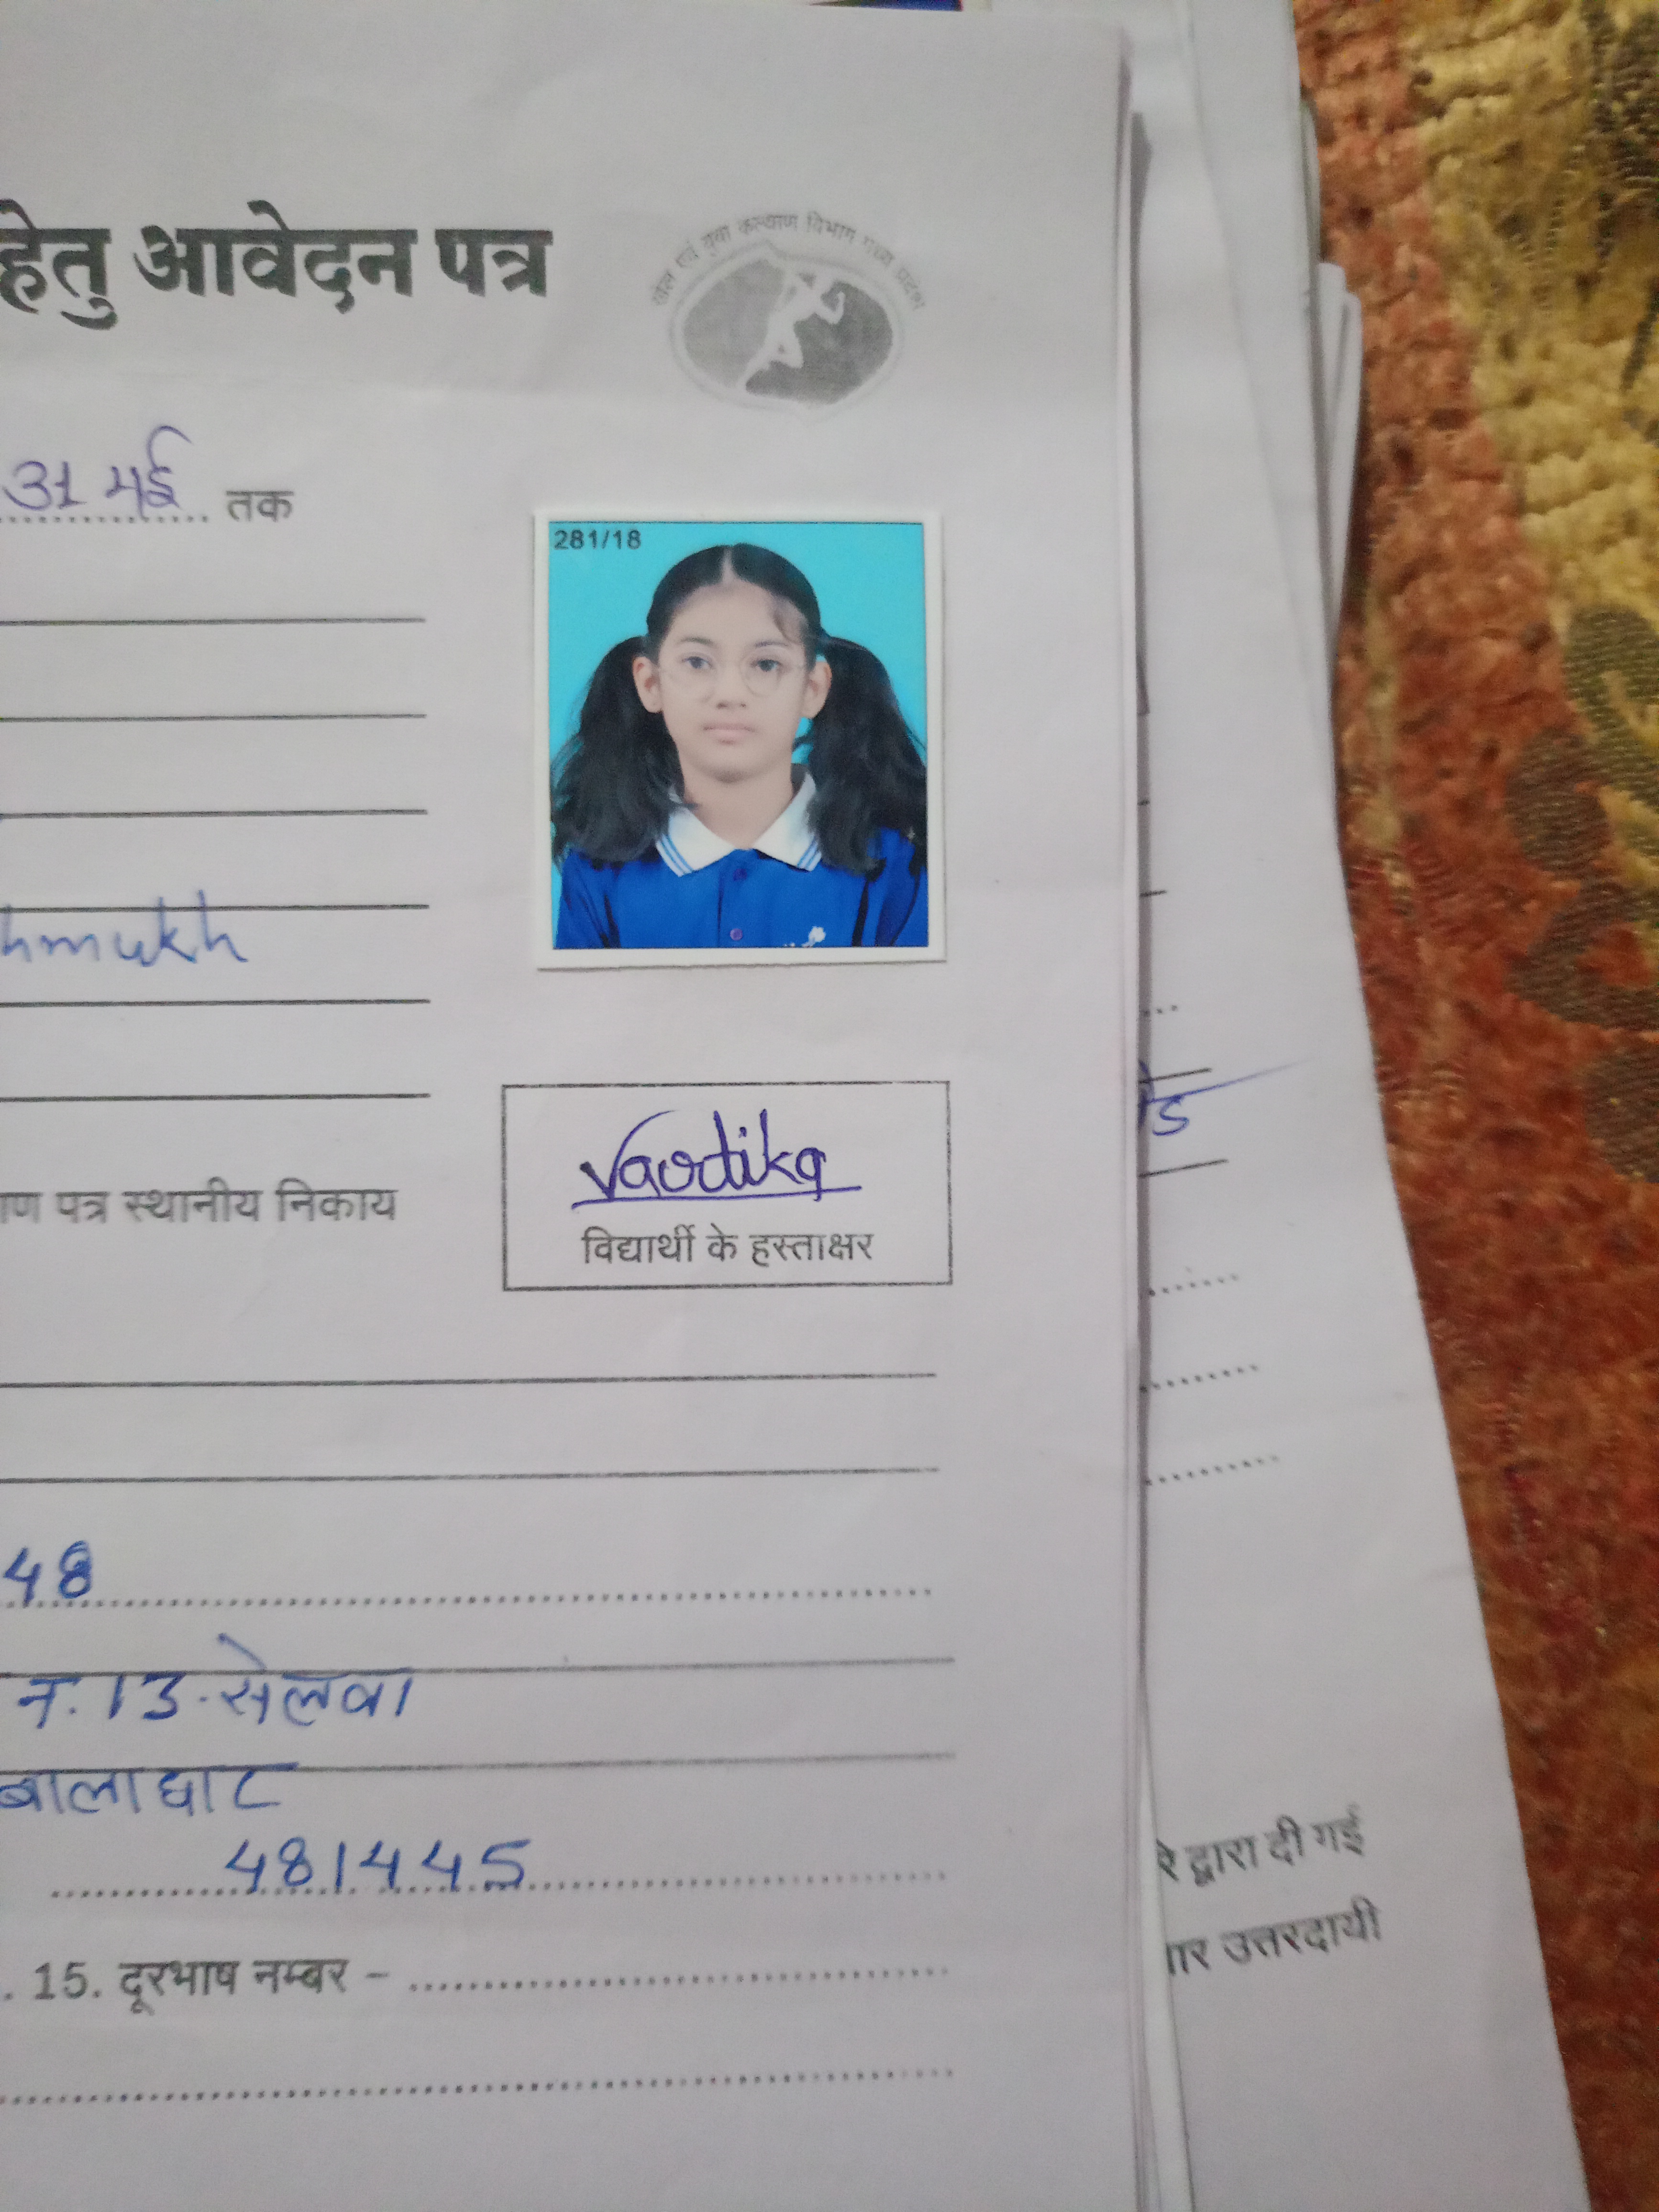 हेतु आवेदन पत्र
खेल एवं युवा कल्याण विभाग मध्य प्रदेश
31 मई तक
281/18
hmukh
Vaodika
ाण पत्र स्थानीय निकाय
विद्यार्थी के हस्ताक्षर
48
न. 13 सेलवा
बालाघाट
481445
रे द्वारा दी गई
. 15. दूरभाष नम्बर –
ार उत्तरदायी